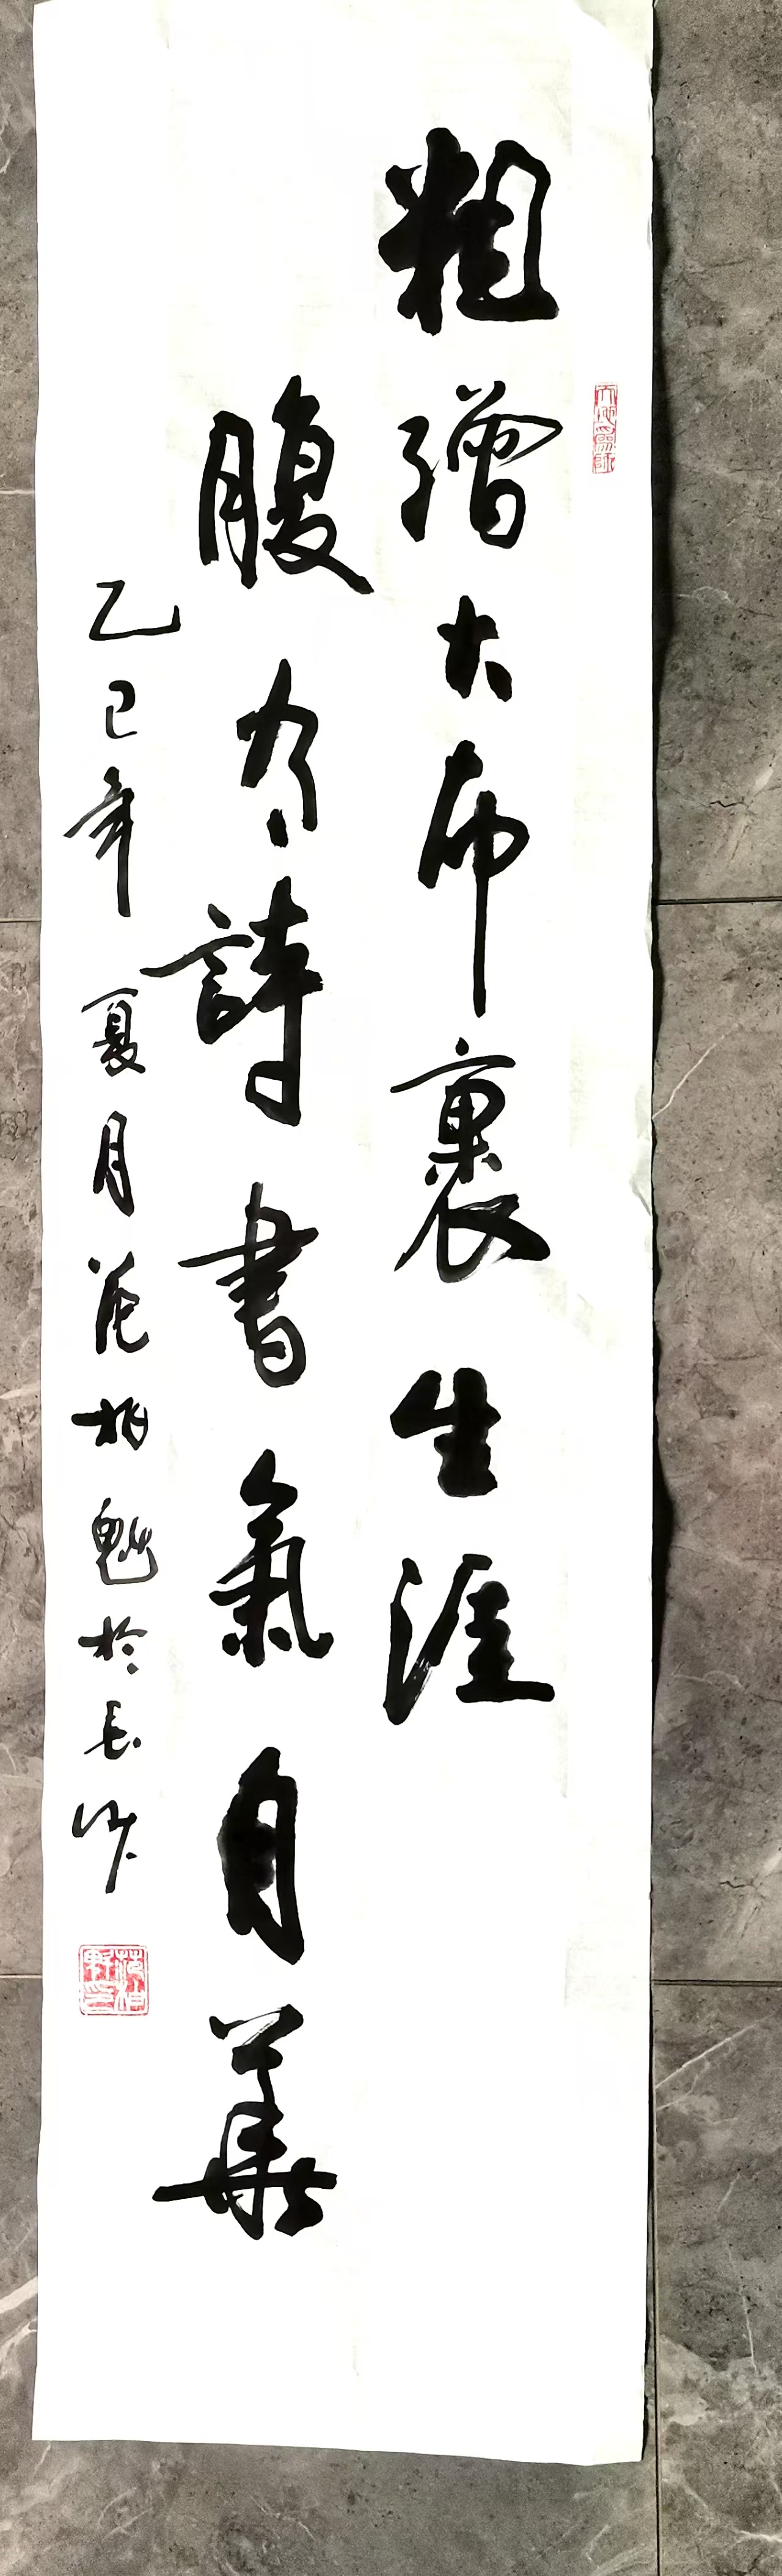 粗繒大布裹生涯
腹有詩書氣自華
乙巳年夏月范柏魁於長沙